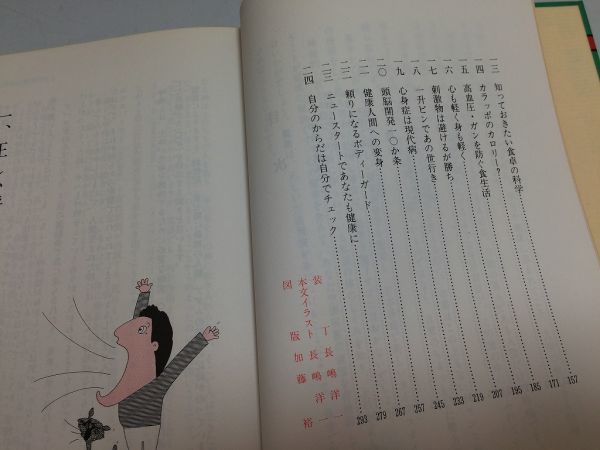 一三 知っておきたい食卓の科学……157
一四 カラッポのカロリー?……171
一五 高血圧・ガンを防ぐ食生活……185
一六 心も軽く身も軽く……195
一七 刺激物は避けるが勝ち……207
一八 一升ビンであの世行き……219
一九 心身症は現代病……233
二〇 頭脳開発一〇か条……245
二一 健康人間への変身……257
二二 頼りになるボディーガード……267
二三 ニュースタートであなたも健康に……279
二四 自分のからだは自分でチェック……293
装丁 長嶋洋一
本文イラスト 長嶋洋一
図版 加藤裕
一、